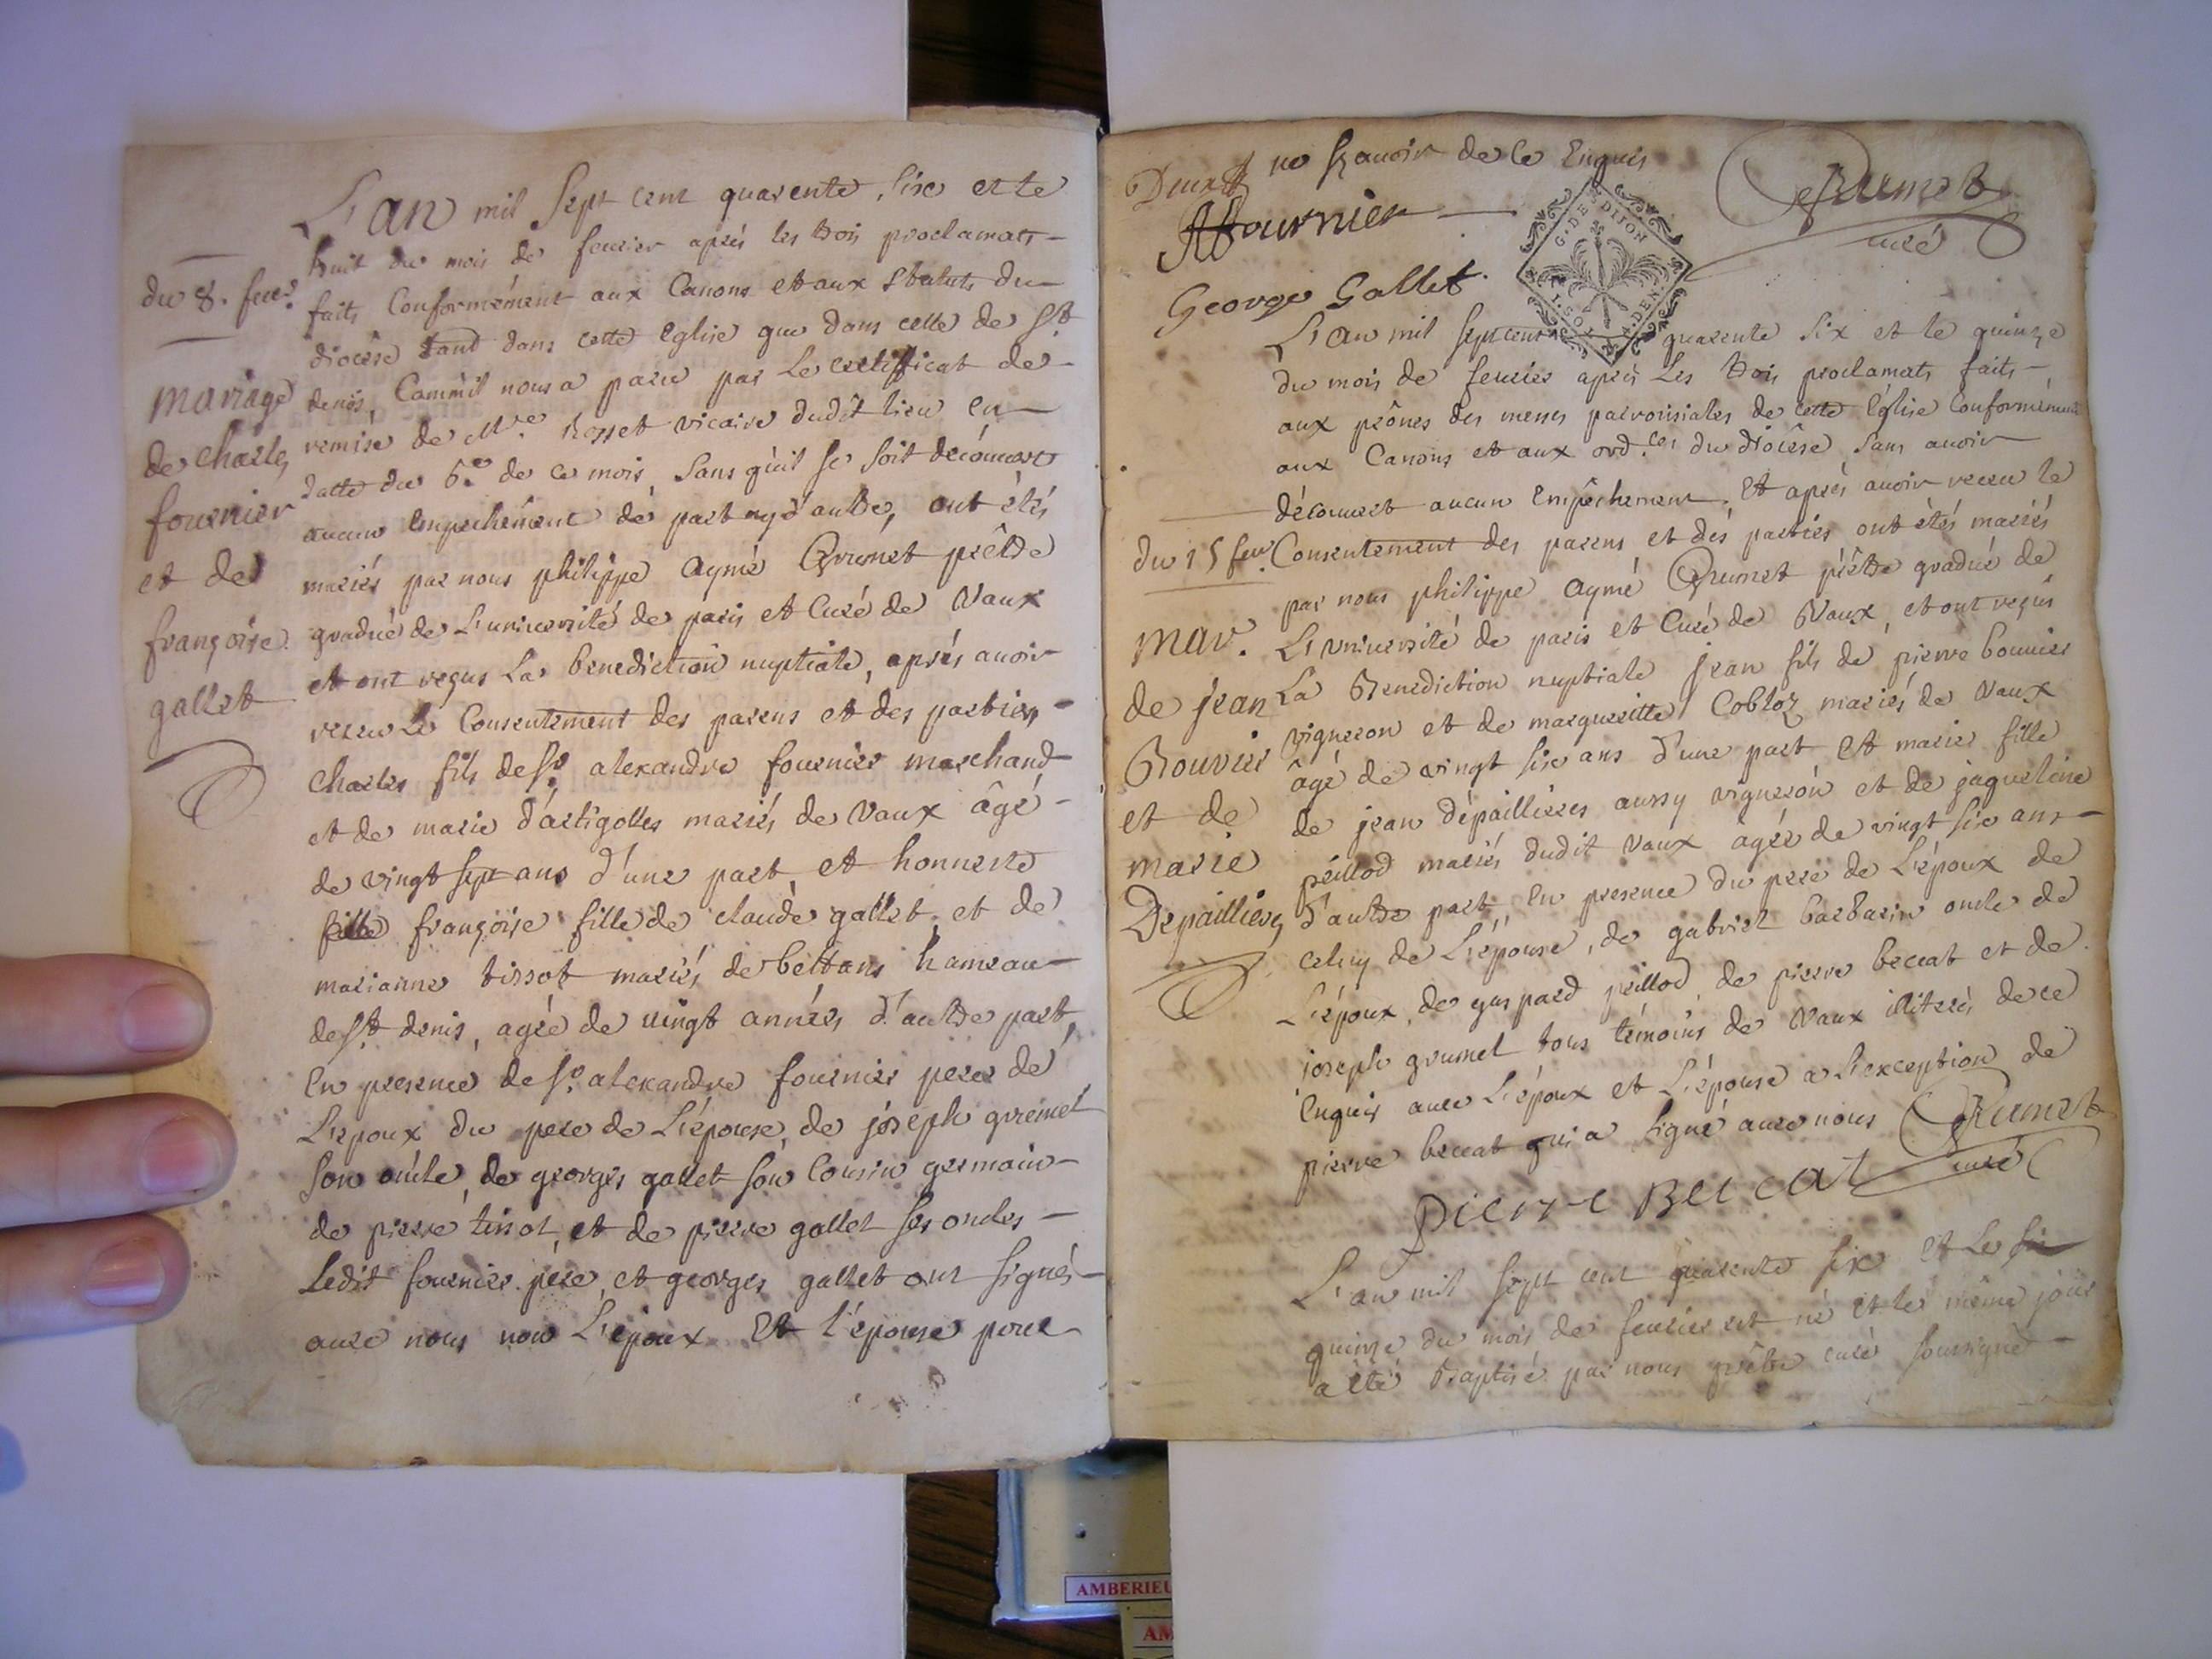 du 8. feur.
mariage
de charles
fournier
et de
françoise
gallet
L'an mil sept cent quarente six et le
huit du mois de feurier aprés les trois proclamats
faits conformément aux Canons et aux statuts du
diocèse tant dans cette Eglise que dans celle de St
denis, Comm'il nous a paru par Le certifficat de
remise de Mre Rosset vicaire dudit lieu en
datte du 6e de ce mois, sans qu'il se soit découuert
aucun empechément de part ny d'autre, ont étés
mariés par nous philippe aymé Grumet prêtre
gradué de L'uniuersité de paris et Curé de Vaux
et ont reçus La benediction nuptiale, aprés auoir
receu Le Consentement des parens et des parties,
Charles fils de Sr. alexandre fournier marchand
et de marie d'artigolles mariés de Vaux âgé
de vingt sept ans d'une part et honneste
fille françoise fille de claude gallet et de
marianne tissot mariés de bettans hameau
de St. denis, agée de vingt années d'autre part,
En presence de Sr. alexandre fournier pere de
L'epoux du pere de L'épouse, de joseph grumet
son oncle, de georges gallet son Cousin germain
de pierre tissot, et de pierre gallet ses oncles
Ledit fournier pere, et georges gallet ont signés
auec nous non L'époux et l'épouse pour
ne sçauoir de ce Enquis
Grumet
curé
AFournier
George Gallet.
G. DE DIJON
du 15 feur.
mar.
de jean
Bouvier
et de
marie
Depaillieres
L'an mil sept cent quarente six et le quinze
du mois de feurier aprés Les trois proclamats faits
aux prônes des messes parroissiales de cette Eglise Conformément
aux Canons et aux ord.ces du diocèse sans auoir
découuert aucun Empêchement, Et aprés auoir receu le
Consentement des parens et des parties ont étés mariés
par nous philippe aymé Grumet prêtre gradué de
L'Vniuersité de paris et Curé de Vaux, et ont reçus
La Benediction nuptiale jean fils de pierre bouuier
vigneron et de margueritte Cobloz mariés de Vaux
âgé de vingt six ans d'une part et marie fille
de jean dépaillieres aussy vigneron et de jaqueline
peillod mariés dudit Vaux agée de vingt six ans
d'autre part, En presence du pere de L'époux de
celuy de L'épouse, de gabriel barbarin oncle de
L'époux, de gaspard peillod, de pierre beccat et de
joseph grumet tous témoins de Vaux illiterés de ce
Enquis auec L'époux et L'épouse a L'exception de
pierre beccat qui a signé auec nous Grumet
curé
pierre Beccat
L'an mil sept cent quarente six et le
quinze du mois de feurier est né et le même jour
a été Baptisé par nous prêtre curé soussigné